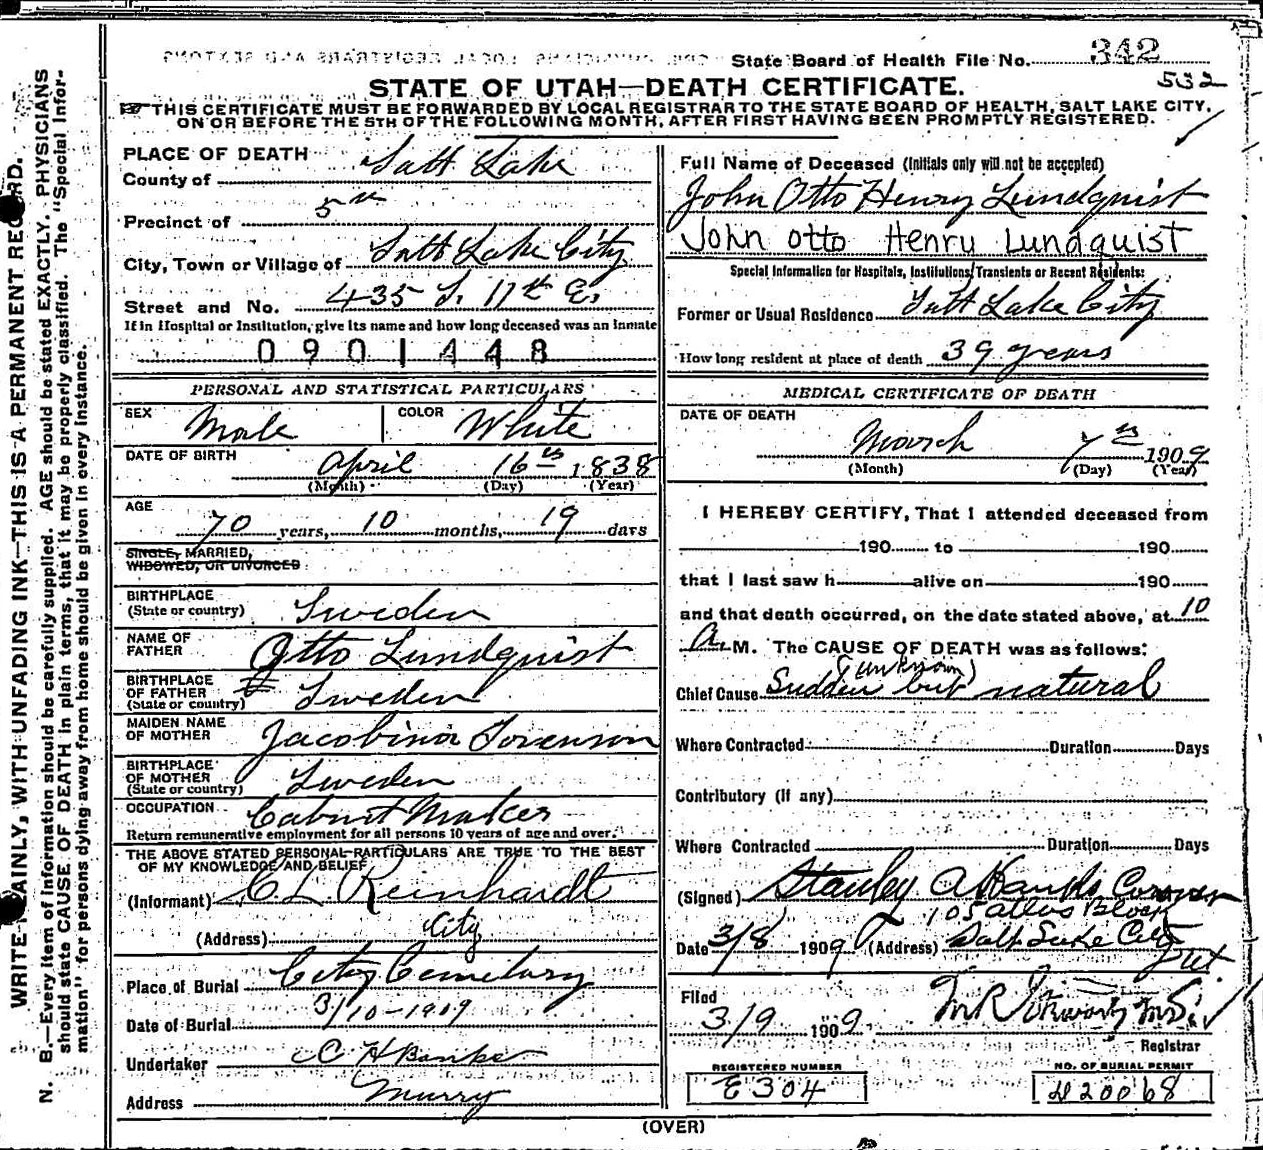 State Board of Health File No. 342
532
STATE OF UTAH—DEATH CERTIFICATE.
THIS CERTIFICATE MUST BE FORWARDED BY LOCAL REGISTRAR TO THE STATE BOARD OF HEALTH, SALT LAKE CITY,
ON OR BEFORE THE 5TH OF THE FOLLOWING MONTH, AFTER FIRST HAVING BEEN PROMPTLY REGISTERED.
WRITE PLAINLY, WITH UNFADING INK—THIS IS A PERMANENT RECORD.
N. B.—Every item of information should be carefully supplied. AGE should be stated EXACTLY. PHYSICIANS
should state CAUSE OF DEATH in plain terms, that it may be properly classified. The "Special Infor-
mation" for persons dying away from home should be given in every instance.
PLACE OF DEATH
County of Salt Lake
Precinct of 5th
City, Town or Village of Salt Lake City
Street and No. 435 S. 11th E.
If in Hospital or Institution, give its name and how long deceased was an inmate
0901448
PERSONAL AND STATISTICAL PARTICULARS
SEX Male COLOR White
DATE OF BIRTH April 16th 1838
(Month) (Day) (Year)
AGE
70 years, 10 months, 19 days
SINGLE, MARRIED,
WIDOWED, OR DIVORCED
BIRTHPLACE
(State or country) Sweden
NAME OF
FATHER Otto Lundquist
BIRTHPLACE
OF FATHER Sweden
(State or country)
MAIDEN NAME
OF MOTHER Jacobina Sorenson
BIRTHPLACE
OF MOTHER Sweden
(State or country)
OCCUPATION Cabinet Maker
Return remunerative employment for all persons 10 years of age and over.
THE ABOVE STATED PERSONAL PARTICULARS ARE TRUE TO THE BEST
OF MY KNOWLEDGE AND BELIEF
(Informant) C. L. Reinhardt
(Address) City
Place of Burial City Cemetary
Date of Burial 3/10-1909
Undertaker C H Banks
Address Murry
Full Name of Deceased (Initials only will not be accepted)
John Otto Henry Lundquist
John otto Henry Lundquist
Special Information for Hospitals, Institutions, Transients or Recent Residents:
Former or Usual Residence Salt Lake City
How long resident at place of death 39 years
MEDICAL CERTIFICATE OF DEATH
DATE OF DEATH
March 7th 1909
(Month) (Day) (Year)
I HEREBY CERTIFY, That I attended deceased from
190 to 190
that I last saw h alive on 190
and that death occurred, on the date stated above, at 10
A. M. The CAUSE OF DEATH was as follows:
(unknown)
Chief Cause Sudden but natural
Where Contracted Duration Days
Contributory (if any)
Where Contracted Duration Days
(Signed) Stanley A Hanks Coroner
105 Atlas Block
Date 3/8 1909 (Address) Salt Lake City
Ut.
Filed
3/9 1909
Registrar
REGISTERED NUMBER
E 304
NO. OF BURIAL PERMIT
20068
(OVER)